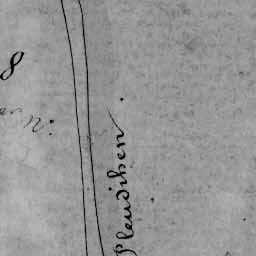 8
n:
Pleudihen.